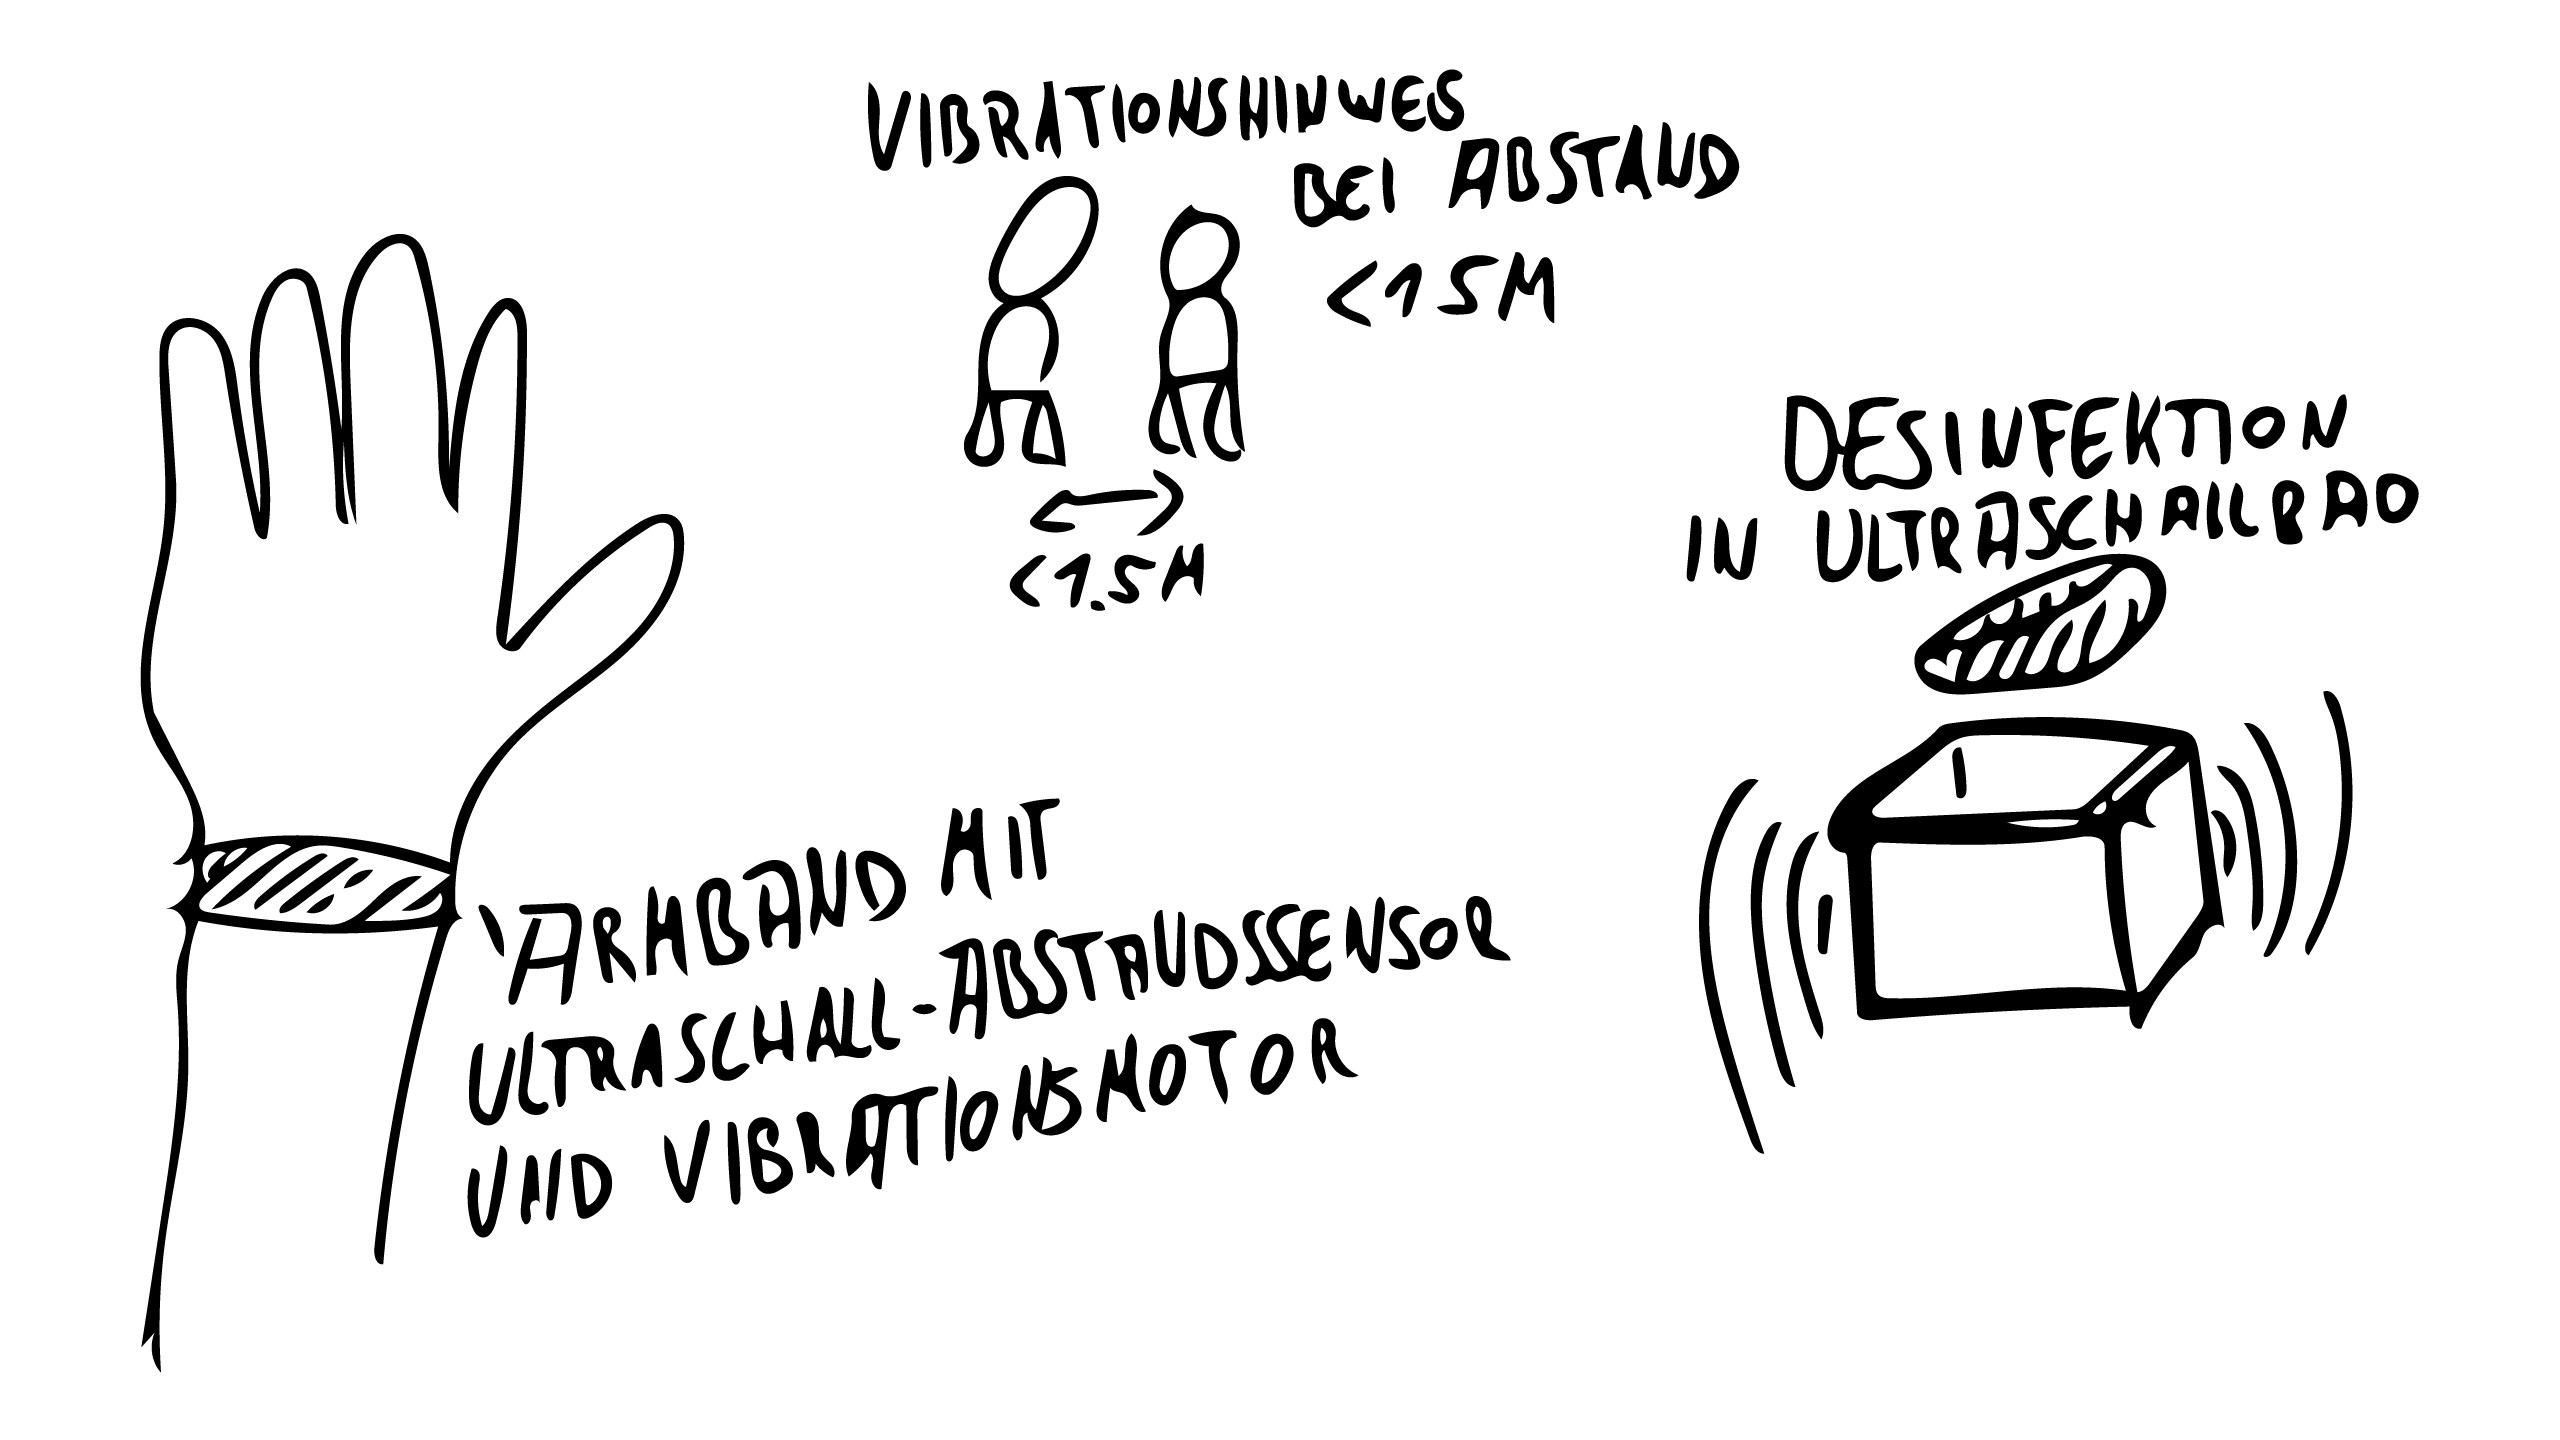 VIBRATIONSHINWES
BEI ABSTAND
<15M
<1.5M
DESINFEKTION
IN ULTRASCHALLBAD
ARMBAND MIT
ULTRASCHALL-ABSTANDSSENSOR
UND VIBRATIONSMOTOR